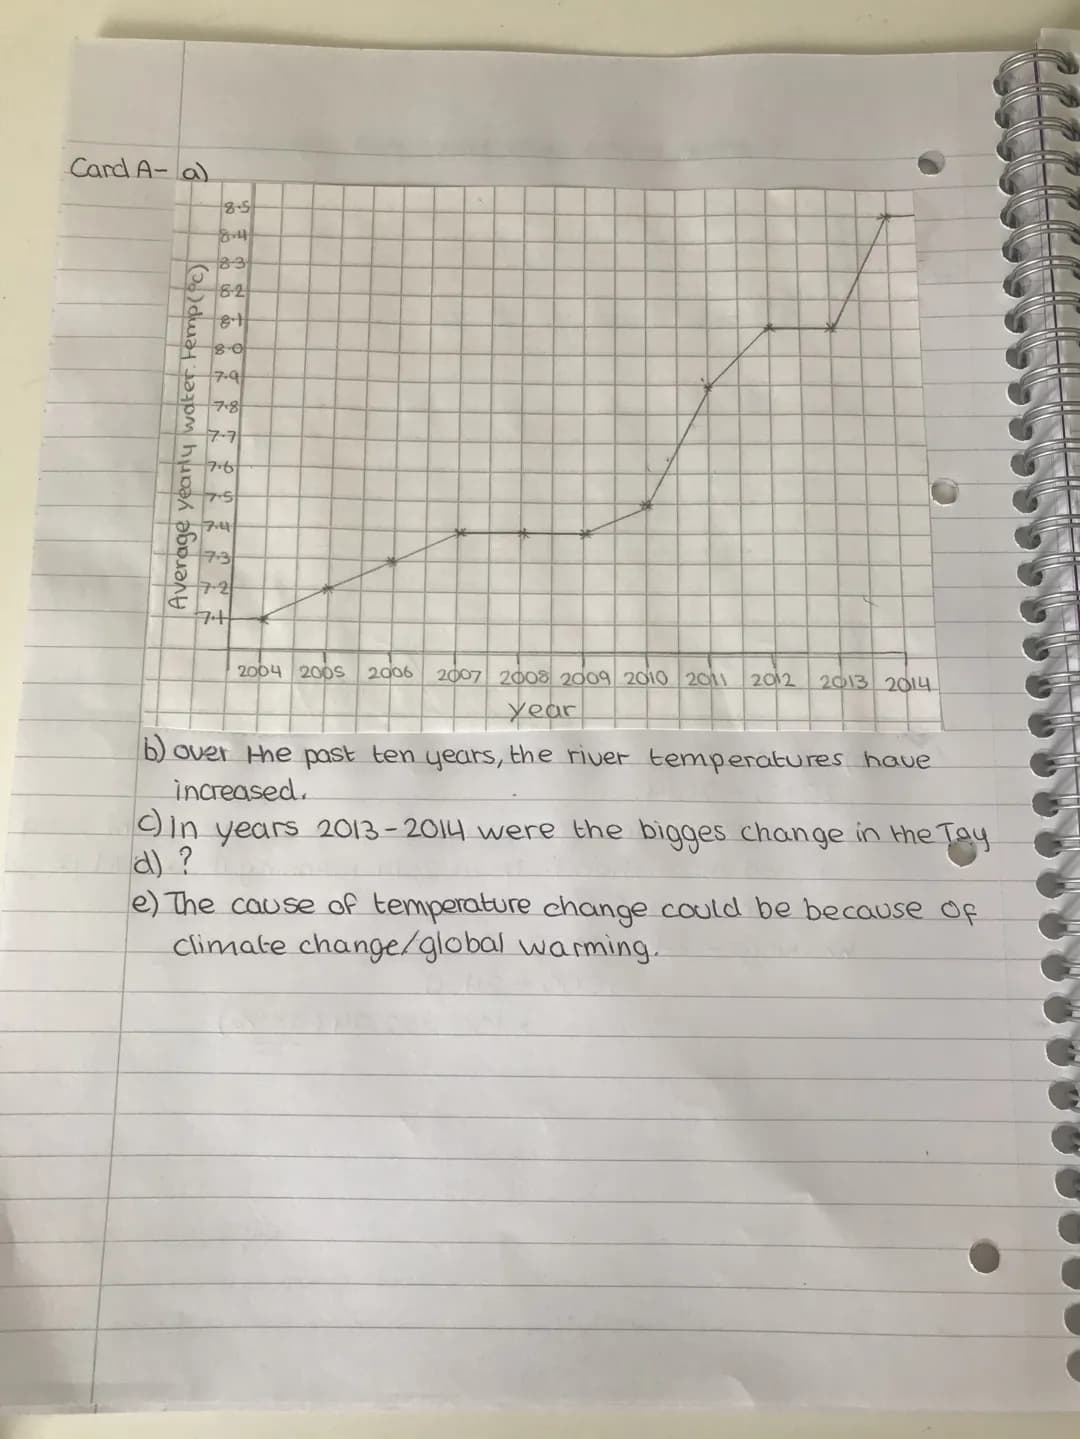 Card A- a)
8.5
8.4
8.3
8.2
8.1
8.0
7.9
7.8
7.7
7.6
7.5
7.4
7.3
7.2
7.1
Average yearly water temp(°C)
2004 2005 2006 2007 2008 2009 2010 2011 2012 2013 2014
year
b) over the past ten years, the river temperatures have
increased.
c) In years 2013-2014 were the bigges change in the Tay
d) ?
e) The cause of temperature change could be because of
climate change/global warming.